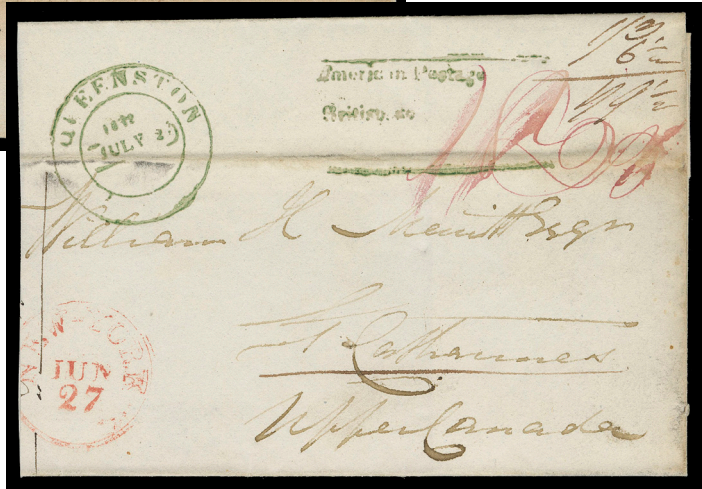 QUEENSTON
JULY
American Postage
British, do
William H Merritt Esqr
St Catharines
Upper Canada
NEW-YORK
JUN
27